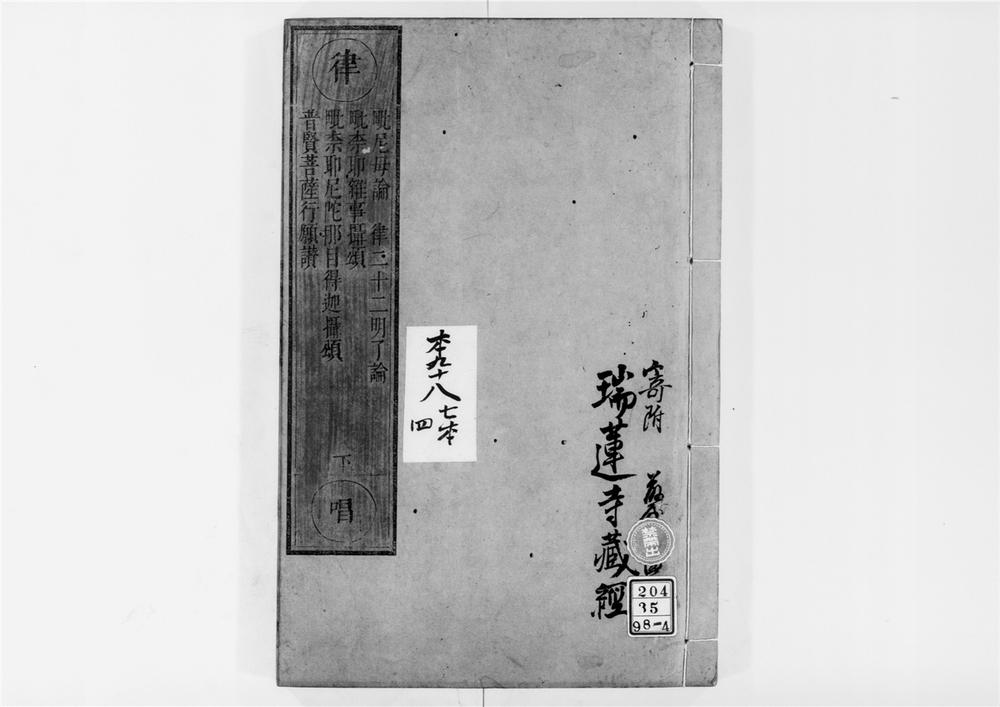 律
毗尼母論 律二十二明了論
毗柰耶雜事攝頌
毗柰耶尼陀那目得迦攝頌
普賢菩薩行願讃
下
唱
本九十八
七本
四
寄附
瑞蓮寺藏經
禁出
204
35
98-4